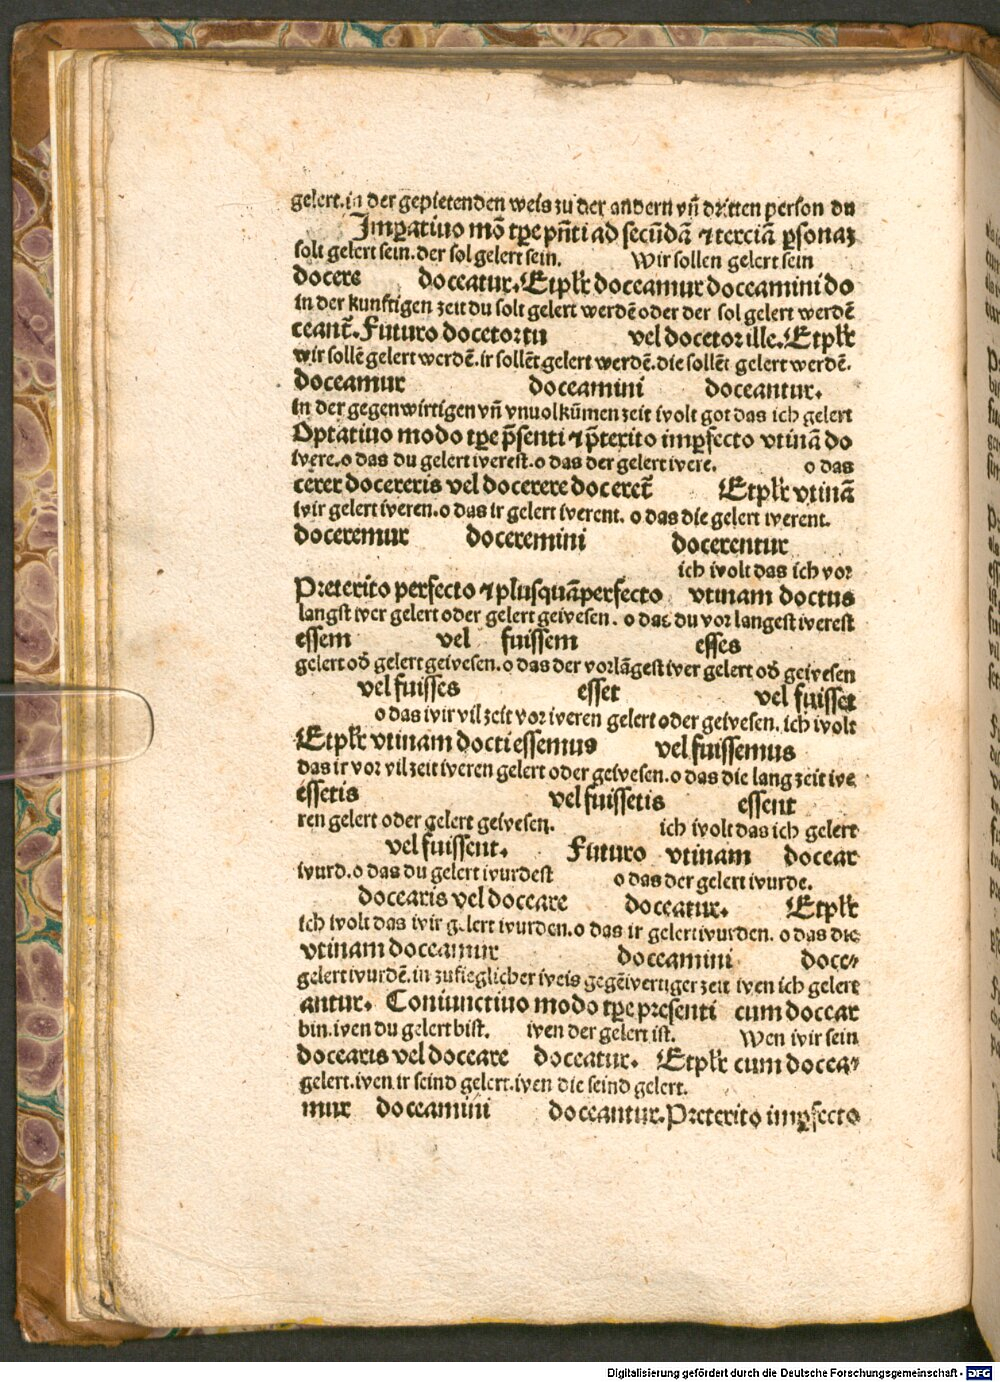 gelert.in der gepietenden weis zu der andern vñ dritten person du
Imꝑatiuo mō tꝑe pñti ad secūdā ⁊ terciā ꝑsonaꝫ
solt gelert sein.der sol gelert sein. Wir sollen gelert sein
docere doceatur.Etplr̄ doceamur doceamini do
in der kunftigen zeit du solt gelert werdē oder der sol gelert werdē
ceant̄.Futuro docetor tu vel docetor ille.Etplr̄
wir sollē gelert werdē.ir sollēt gelert werdē.die sollēt gelert werdē.
doceamur doceamini doceantur.
in der gegenwirtigen vñ vnuolkūmen zeit wolt got das ich gelert
Optatiuo modo tꝑe p̄senti ⁊ p̄terito imꝑfecto vtinā do
were.o das du gelert werest.o das der gelert were. o das
cerer docereris vel docerere doceret̄ Etplr̄ vtinā
wir gelert weren.o das ir gelert werent. o das die gelert werent.
doceremur doceremini docerentur
ich wolt das ich vor
Preterito perfecto ⁊ plusquāperfecto vtinam doctus
langst wer gelert oder gelert gewesen. o das du vor langest werest
essem vel fuissem esses
gelert od̄ gelert gewesen.o das der vorlāgest wer gelert od̄ gewesen
vel fuisses esset vel fuisset
o das wir vil zeit vor weren gelert oder gewesen. ich wolt
Etplr̄ vtinam docti essemus vel fuissemus
das ir vor vil zeit weren gelert oder gewesen.o das die lang zeit we
essetis vel fuissetis essent
ren gelert oder gelert gewesen. ich wolt das ich gelert
vel fuissent. Futuro vtinam docear
wurd.o das du gelert wurdest o das der gelert wurde.
docearis vel doceare doceatur. Etplr̄
ich wolt das wir gelert wurden.o das ir gelert wurden. o das die
vtinam doceamur doceamini doce⸗
gelert wurdē.in zufieglicher weis gegēwertiger zeit wen ich gelert
antur. Coniunctiuo modo tꝑe presenti cum docear
bin.wen du gelert bist. wen der gelert ist. Wen wir sein
docearis vel doceare doceatur. Etplr̄ cum docea⸗
gelert.wen ir seind gelert.wen die seind gelert.
mur doceamini doceantur.Preterito imꝑfecto
Digitalisierung gefördert durch die Deutsche Forschungsgemeinschaft - DFG